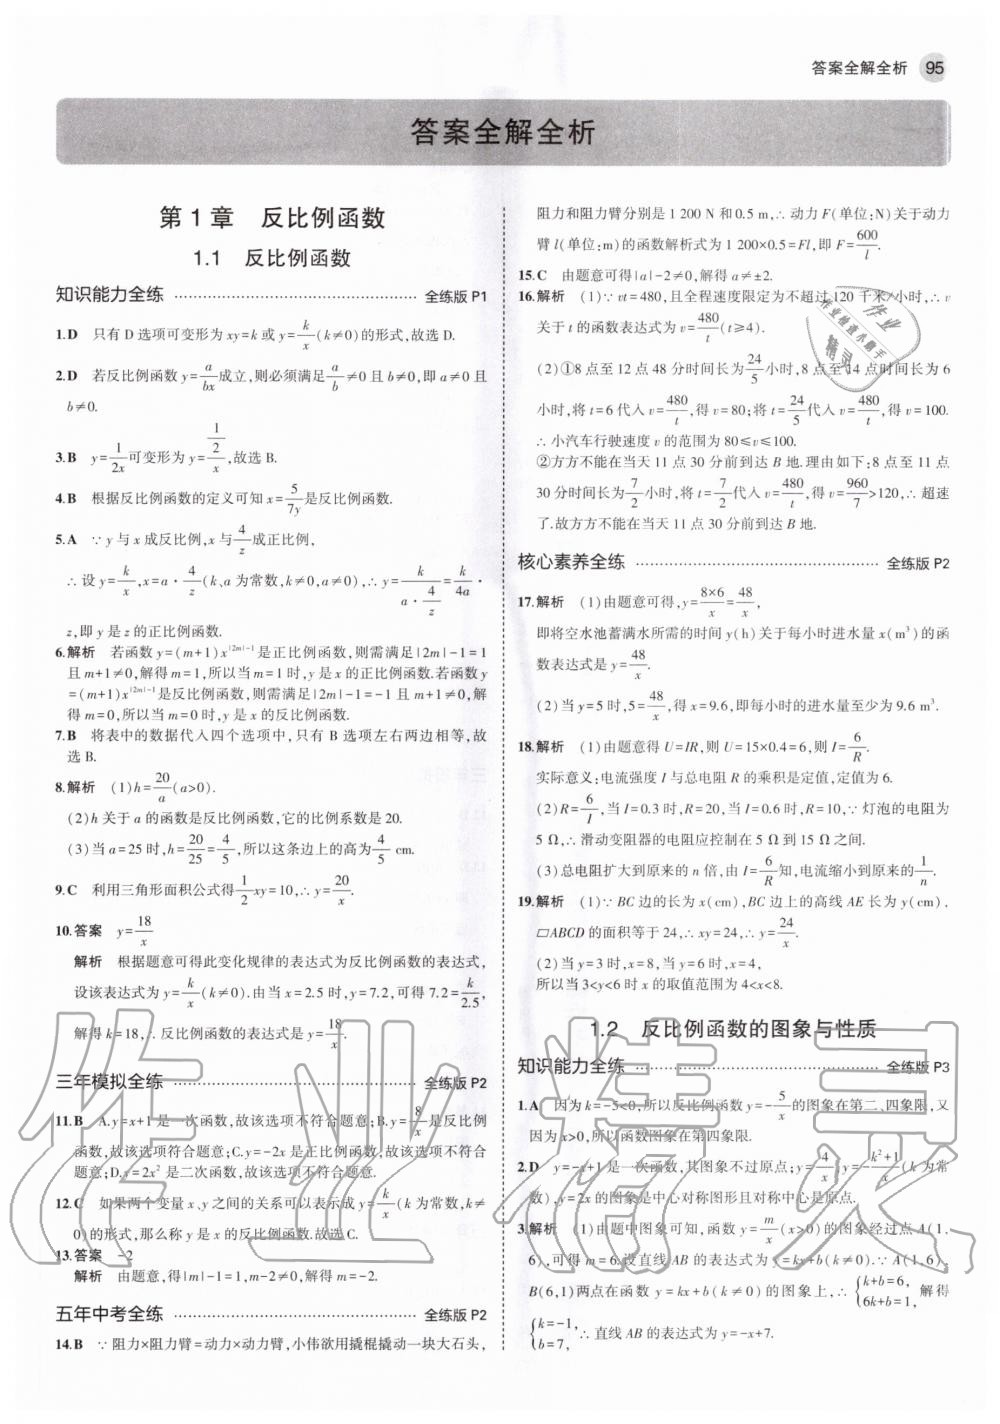 答案全解全析 95
答案全解全析
第1章 反比例函数
1.1 反比例函数
知识能力全练 …… 全练版 P1
1.D 只有 D 选项可变形为 xy=k 或 y=k/x(k≠0)的形式,故选 D.
2.D 若反比例函数 y=a/bx 成立,则必须满足 a/b≠0 且 b≠0,即 a≠0 且
b≠0.
3.B y=1/2x 可变形为 y=(1/2)/x,故选 B.
4.B 根据反比例函数的定义可知 x=5/7y 是反比例函数.
5.A ∵ y 与 x 成反比例,x 与 4/z 成正比例,
∴ 设 y=k/x,x=a·4/z(k、a 为常数,k≠0,a≠0),∴ y=k/(a·4/z)=k/4a·
z,即 y 是 z 的正比例函数.
6.解析 若函数 y=(m+1)x^(|2m|-1) 是正比例函数,则需满足|2m|-1=1
且 m+1≠0,解得 m=1,所以当 m=1 时,y 是 x 的正比例函数.若函数 y
=(m+1)x^(|2m|-1) 是反比例函数,则需满足|2m|-1=-1 且 m+1≠0,解
得 m=0,所以当 m=0 时,y 是 x 的反比例函数.
7.B 将表中的数据代入四个选项中,只有 B 选项左右两边相等,故
选 B.
8.解析 (1)h=20/a(a>0).
(2)h 关于 a 的函数是反比例函数,它的比例系数是 20.
(3)当 a=25 时,h=20/25=4/5,所以这条边上的高为 4/5 cm.
9.C 利用三角形面积公式得 1/2xy=10,∴ y=20/x.
10.答案 y=18/x
解析 根据题意可得此变化规律的表达式为反比例函数的表达式,
设该表达式为 y=k/x(k≠0).由当 x=2.5 时,y=7.2,可得 7.2=k/2.5,
解得 k=18,∴ 反比例函数的表达式是 y=18/x.
三年模拟全练 …… 全练版 P2
11.B A.y=x+1 是一次函数,故该选项不符合题意;B.y=8/x 是反比例
函数,故该选项符合题意;C.y=-2x 是正比例函数,故该选项不符合
题意;D.y=2x² 是二次函数,故该选项不符合题意.
12.C 如果两个变量 x、y 之间的关系可以表示成 y=k/x(k 为常数,k≠
0)的形式,那么称 y 是 x 的反比例函数.故选 C.
13.答案 -2
解析 由题意,得|m|-1=1,m-2≠0,解得 m=-2.
五年中考全练 …… 全练版 P2
14.B ∵ 阻力×阻力臂=动力×动力臂,小伟欲用撬棍撬动一块大石头,
阻力和阻力臂分别是 1 200 N 和 0.5 m,∴ 动力 F(单位:N)关于动力
臂 l(单位:m)的函数解析式为 1 200×0.5=Fl,即 F=600/l.
15.C 由题意可得|a|-2≠0,解得 a≠±2.
16.解析 (1)∵ vt=480,且全程速度限定为不超过 120 千米/小时,∴ v
关于 t 的函数表达式为 v=480/t(t≥4).
(2)①8 点至 12 点 48 分时间长为 24/5 小时,8 点至 14 点时间长为 6
小时,将 t=6 代入 v=480/t,得 v=80;将 t=24/5 代入 v=480/t,得 v=100.
∴ 小汽车行驶速度 v 的范围为 80≤v≤100.
②方方不能在当天 11 点 30 分前到达 B 地.理由如下:8 点至 11 点
30 分时间长为 7/2 小时,将 t=7/2 代入 v=480/t,得 v=960/7>120,∴ 超速
了.故方方不能在当天 11 点 30 分前到达 B 地.
核心素养全练 …… 全练版 P2
17.解析 (1)由题意可得,y=8×6/x=48/x,
即将空水池蓄满水所需的时间 y(h)关于每小时进水量 x(m³)的函
数表达式是 y=48/x.
(2)当 y=5 时,5=48/x,得 x=9.6,即每小时的进水量至少为 9.6 m³.
18.解析 (1)由题意得 U=IR,则 U=15×0.4=6,则 I=6/R.
实际意义:电流强度 I 与总电阻 R 的乘积是定值,定值为 6.
(2)R=6/I,当 I=0.3 时,R=20,当 I=0.6 时,R=10,∵ 灯泡的电阻为
5 Ω,∴ 滑动变阻器的电阻应控制在 5 Ω 到 15 Ω 之间.
(3)总电阻扩大到原来的 n 倍,由 I=6/R 知,电流缩小到原来的 1/n.
19.解析 (1)∵ BC 边的长为 x(cm),BC 边上的高线 AE 长为 y(cm),
▱ABCD 的面积等于 24,∴ xy=24,∴ y=24/x.
(2)当 y=3 时,x=8,当 y=6 时,x=4,
所以当 3<y<6 时 x 的取值范围为 4<x<8.
1.2 反比例函数的图象与性质
知识能力全练 …… 全练版 P3
1.A 因为 k=-5<0,所以反比例函数 y=-5/x 的图象在第二、四象限,又
因为 x>0,所以函数图象在第四象限.
2.D y=-x+1 是一次函数,其图象不过原点;y=4/x,y=-(k²+1)/x(k 为常
数),y=2x 的图象是中心对称图形且对称中心是原点.
3.解析 (1)由题中图象可知,函数 y=m/x(x>0)的图象经过点 A(1,
6),可得 m=6.设直线 AB 的表达式为 y=kx+b(k≠0).∵ A(1,6),
B(6,1)两点在函数 y=kx+b(k≠0)的图象上,∴ {k+b=6, 6k+b=1, 解得
{k=-1, b=7, ∴ 直线 AB 的表达式为 y=-x+7.
作业精灵
作业
作业检查小助手
精灵